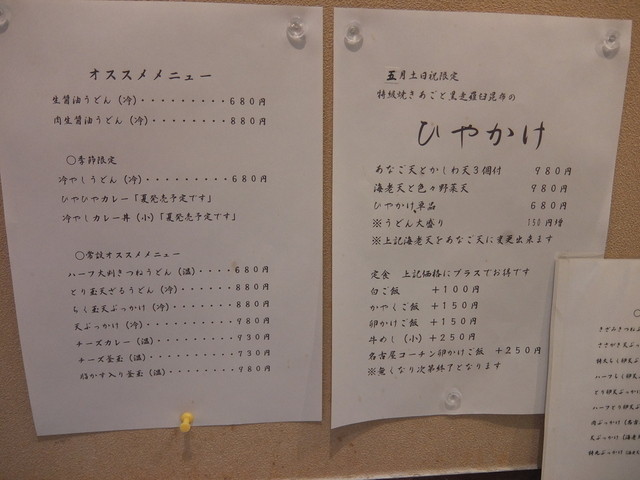 オススメメニュー
生醤油うどん(冷)・・・・・・・・・680円
肉生醤油うどん(冷)・・・・・・・・880円
○季節限定
冷やしうどん(冷)・・・・・・・・・680円
ひやひやカレー「夏発売予定です」
冷やしカレー丼(小)「夏発売予定です」
○常設オススメメニュー
ハーフ大判きつねうどん(温)・・・・680円
とり玉天ざるうどん(冷)・・・・・・880円
ちく玉天ぶっかけ(冷)・・・・・・・880円
天ぶっかけ(冷)・・・・・・・・・・980円
チーズカレー(温)・・・・・・・・・930円
チーズ釜玉(温)・・・・・・・・・・730円
脂かす入り釜玉(温)・・・・・・・・980円
五月土日祝限定
特級焼きあごと黒走羅臼昆布の
ひやかけ
あなご天とかしわ天3個付 980円
海老天と色々野菜天 980円
ひやかけ単品 680円
※うどん大盛り 150円増
※上記海老天をあなご天に変更出来ます
定食 上記価格にプラスでお得です
白ご飯 +100円
かやくご飯 +150円
卵かけご飯 +150円
牛めし(小)+250円
名古屋コーチン卵かけご飯 +250円
※無くなり次第終了となります
○
きざみきつね
ささがき天ぶっ
特大ちく卵天
ハーフちく卵天
とり卵天ぶっ
ハーフとり卵天
肉ぶっかけ(
天ぶっかけ(海老